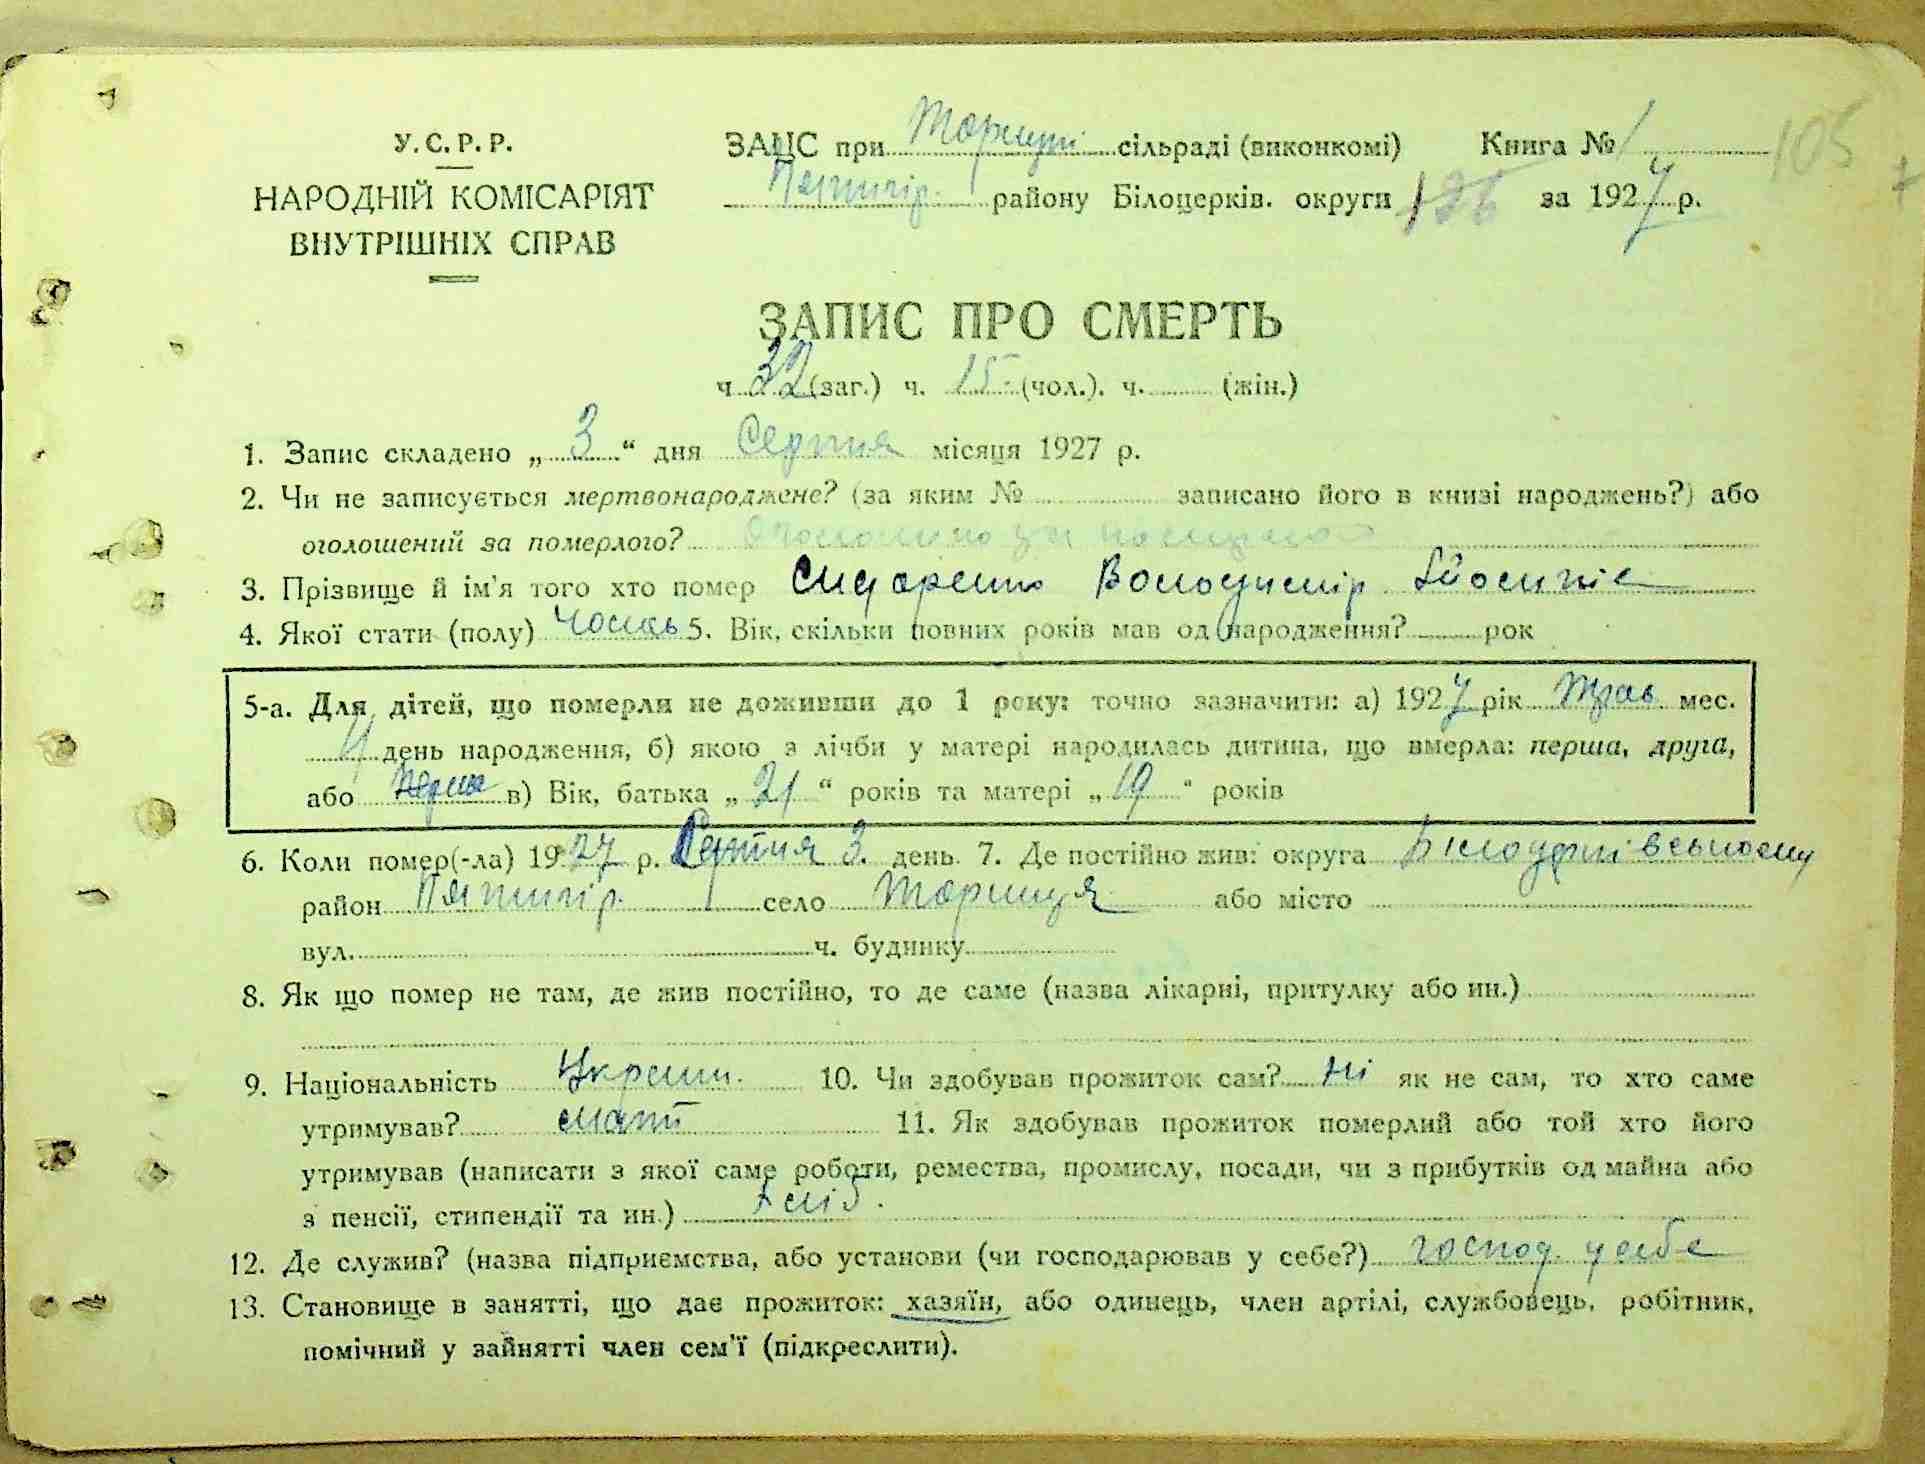 У.С.Р.Р.
НАРОДНІЙ КОМІСАРІЯТ
ВНУТРІШНІХ СПРАВ
ЗАЦС при Торчиці сільраді (виконкомі) Книга № 1 105
Пятигір. району Білоцерків. округи 126 за 1927 р.
ЗАПИС ПРО СМЕРТЬ
ч. 32 (заг.) ч. 15 (чол.). ч. (жін.)
1. Запис складено „ 3 “ дня Серпня місяця 1927 р.
2. Чи не записується мертвонароджене? (за яким № записано його в книзі народжень?) або
оголошений за померлого?
3. Прізвище й ім'я того хто помер Сидоренко Володимір
4. Якої стати (полу) 5. Вік, скільки повних років мав од народження? рок
5-а. Для дітей, що померли не доживши до 1 року: точно зазначити: а) 1927 рік Трав мес.
день народження, б) якою з лічби у матері народилась дитина, що вмерла: перша, друга,
або перша в) Вік, батька „ 21 “ років та матері „ 19 “ років
6. Коли помер(-ла) 1927 р. Серпня 3. день. 7. Де постійно жив: округа
район Пятигір. село Торчиця або місто
вул. ч. будинку
8. Як що помер не там, де жив постійно, то де саме (назва лікарні, притулку або ин.)
9. Національність Украин. 10. Чи здобував прожиток сам? Ні як не сам, то хто саме
утримував? мати 11. Як здобував прожиток померлий або той хто його
утримував (написати з якої саме роботи, ремества, промислу, посади, чи з прибутків од майна або
з пенсії, стипендії та ин.) хліб.
12. Де служив? (назва підприємства, або установи (чи господарював у себе?) господ. у себе
13. Становище в занятті, що дає прожиток: хазяїн, або одинець, член артілі, службовець, робітник,
помічний у зайнятті член сем'ї (підкреслити).